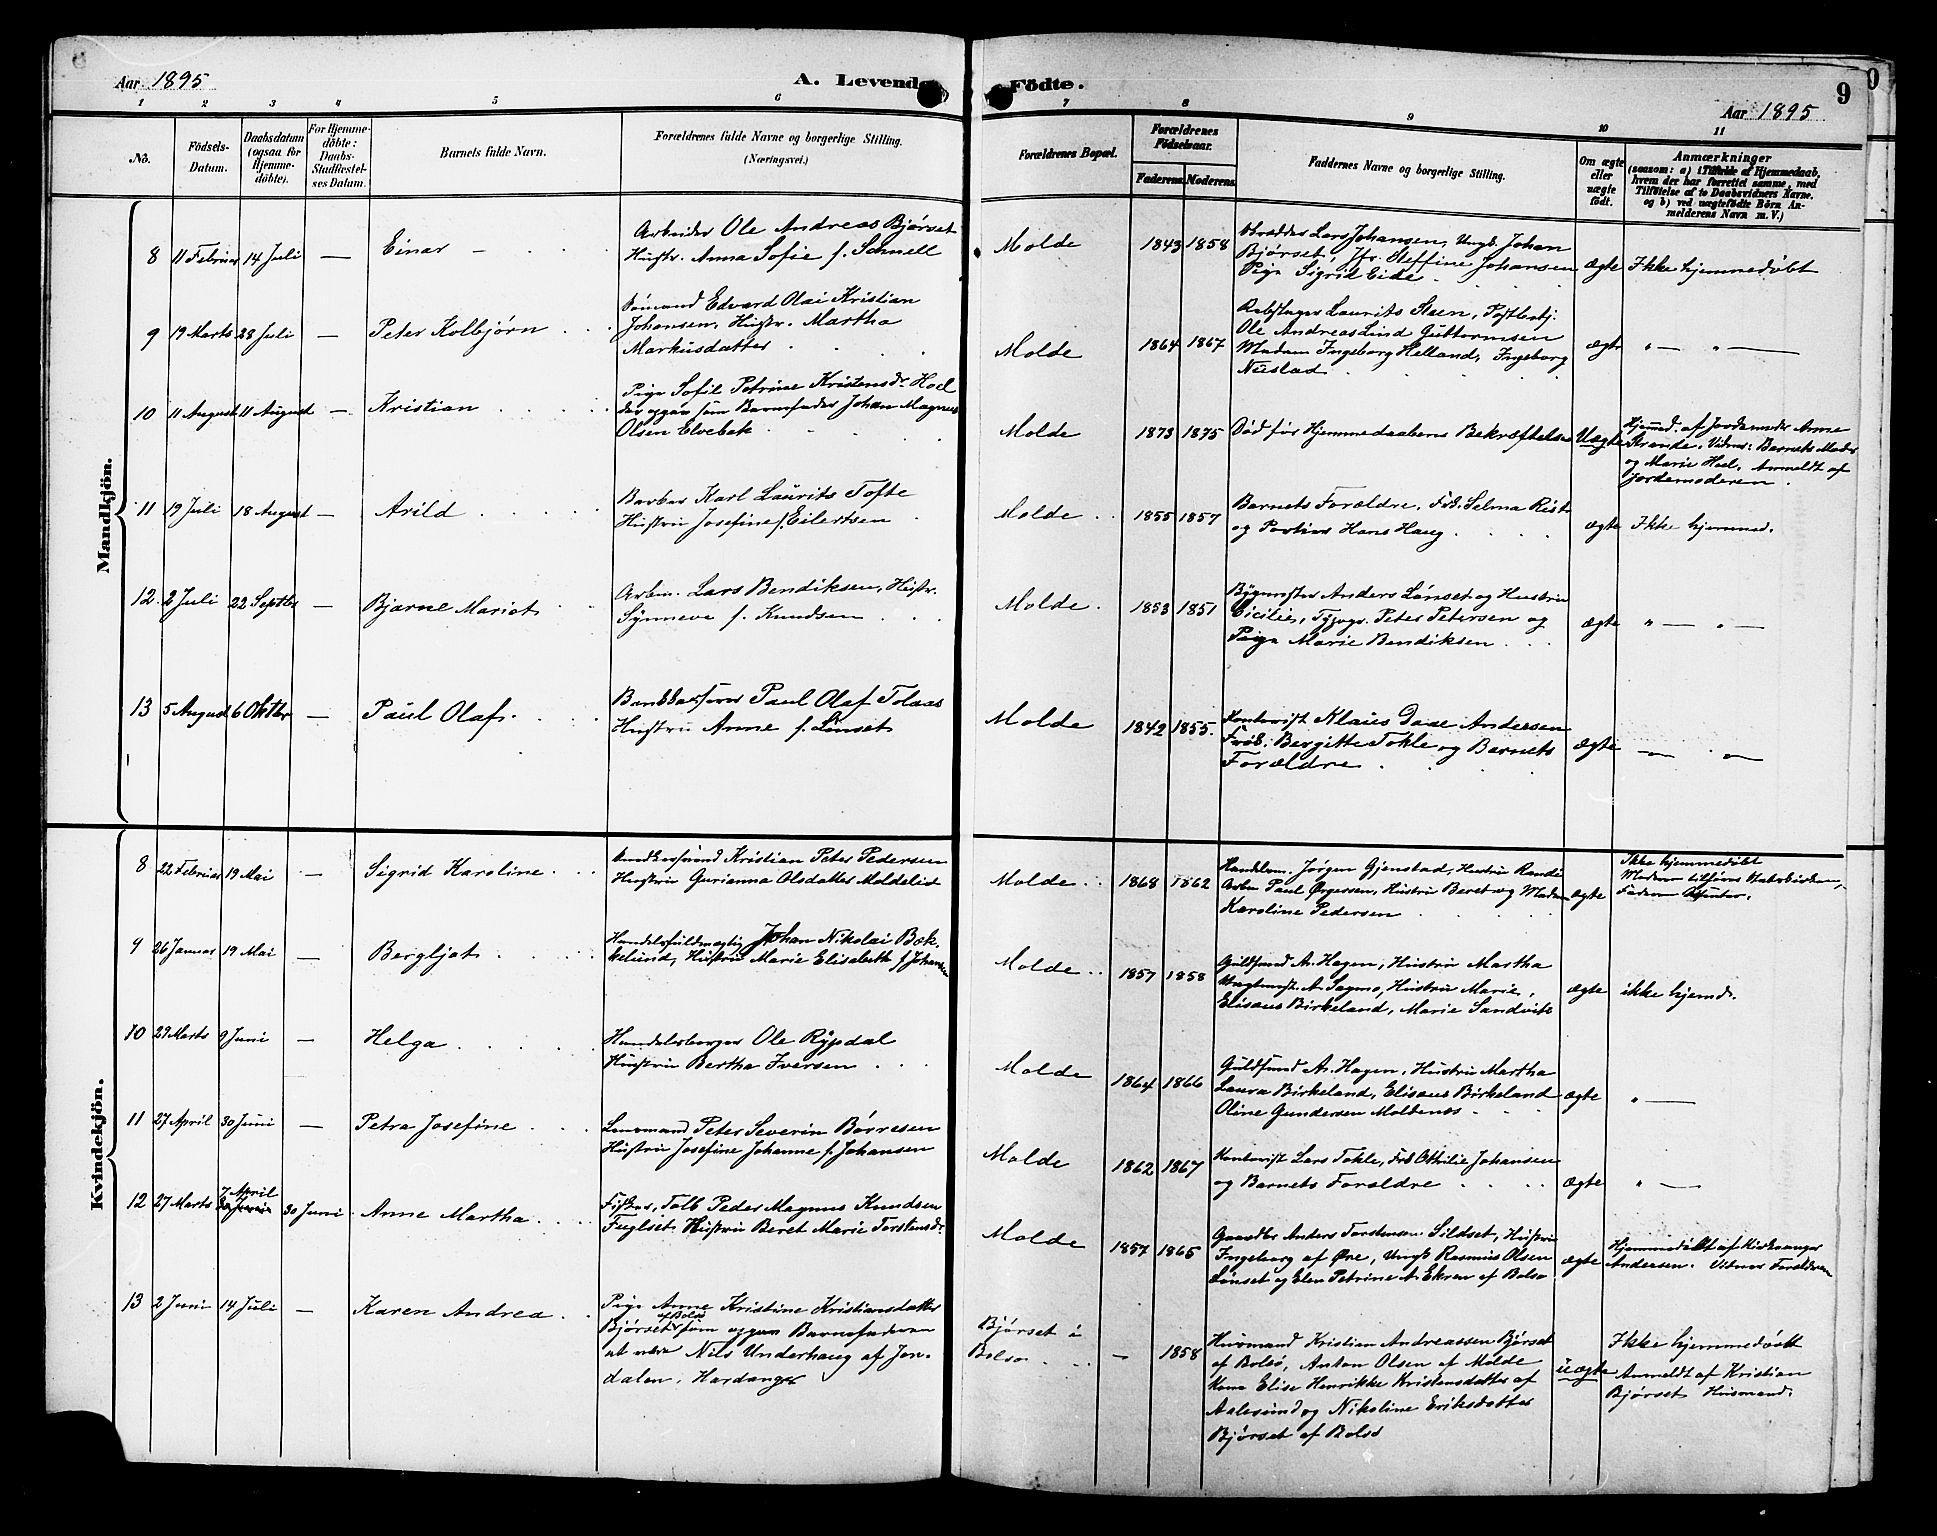 Aar 1895
A. Levende Födte.
9
Aar 1895
1 2 3 4 5 6 7 8 9 10 11
No.
Födsels-Datum.
Daabsdatum (ogsaa for Hjemme-döbte).
For Hjemme-döbte: Daabs-Stadfæstel-ses Datum.
Barnets fulde Navn.
Forældrenes fulde Navne og borgerlige Stilling. (Næringsvei.)
Forældrenes Bopæl.
Forældrenes Födselsaar.
Faderens. Moderens.
Faddernes Navne og borgerlige Stilling.
Om ægte eller uægte födt.
Anmærkninger
(saasom: a) i Tilfælde af Hjemmedaab,
hvem der har forrettet samme, med
Tilföielse af to Daabsvidners Navne,
og b) ved uægtefödte Börn An-
melderens Navn m. V.)
Mandkjön.
8 11 Februar 14 Juli — Einar —
Arbeider Ole Andreas Bjørset
Hustr. Anna Sofie f. Schnell
Molde 1843 1858
Lars Johansen, Ungk. Johan
Bjørset, Jfr. Steffine Johansen
Pige Sigrid Eide
ægte Ikke hjemmedøbt
9 19 Marts 28 Juli — Peter Kolbjørn
Sømand Edvard Olai Kristian
Johansen, Hustr. Martha
Markusdatter
Molde 1864 1867
Rebslager Laurits Steen, Postbetj.
Ole Andreas Lind Guttormsen
Madam Ingeborg Helland, Ingeborg
ægte " — " —
10 11 August 11 August — Kristian
Pige Sofie Petrine Kristensdr. Hoel
der opgav som Barnefader Johan Magnus
Olsen Elvebak
Molde 1873 1875
Død før Hjemmedaabens Bekræftelse
Uægte
Hjemmed. af Jordemoder Anne
Strande. Vidner: Barnets Moder
og Marie Hoel. Anmeldt af
Jordemoderen.
11 19 Juli 18 August — Arild
Barber Karl Laurits Tofte
Hustru Josefine f. Eilertsen
Molde 1855 1857
Barnets Forældre, Frk. Selma
og Portier Hans Haug
ægte Ikke hjemmed.
12. 2 Juli 22 Septbr — Bjarne Mariot
Arbm. Lars Bendiksen, Hustr.
Synneve f. Knudsen
Molde. 1853 1851
Bygmester Anders Lønset og Hustru
Cicilie, Typogr. Peter Petersen og
Pige Marie Bendiksen
ægte " — " —
13 5 August 6 Oktbr — Paul Olaf
Bankkasserer Paul Olaf Tolaas
Hustru Anne f. Lønset
Molde 1842 1855.
Kontorist Klaus Daae Andersen
Frøk. Bergitte Tokle og Barnets
Forældre
ægte — " — " —
Kvindekjön.
8 22 Februar 19 Mai — Sigrid Karoline
Kristian Peter Pedersen
Hustru Gurianna Olsdatter Moldelid
Molde 1868 1862
Handelsm. Jørgen Gjenstad, Hustru Randi
Arbm Paul Ørgersen, Hustru Beret og Madam
Karoline Pedersen
ægte
Ikke hjemmedøbt
Moderen tilhører Statskirken,
Faderen
9 26 Januar 19 Mai — Bergljot
Handelsfuldmægtig Johan Nikolai Bæk-
kelund, Hustru Marie Elisabeth f. Johansen
Molde 1857 1858
Guldsmed A. Hagen, Hustru Martha
A. Sagmo, Hustru Marie,
Elisæus Birkeland, Marie Sandvik
ægte ikke hjemd.
10 27 Marts 9 Juni — Helga
Handelsborger Ole Rypdal
Hustru Bertha Iversen
Molde 1864 1866
Guldsmed A. Hagen, Hustru Martha
Laura Birkeland, Elisæus Birkeland
Oline Gundersen Moldenæs
ægte " —
11 27 April 30 Juni — Petra Josefine
Lensmand Peter Severin Børresen
Hustru Josefine Johanne f. Johansen
Molde 1862 1867
Kontorist Lars Tokle, Frk Othilie Johansen
og Barnets Forældre
ægte " —
12 27 Marts 7 April 30 Juni Anne Martha
Fisker, Tolb Peder Magnus Knudsen
Fuglset Hustru Beret Marie Torstensdr.
Molde 1857 1865
Gaardbr Anders Torstensen Sildset, Hustru
Ingeborg af Øre, Ungk Rasmus Olsen
Lønset og Elen Petrine A. Ekren af Bolsø
ægte
Hjemmedøbt af Kirkesanger
Andersen. Vidner Forældrene
13 2 Juni 14 Juli — Karen Andrea
Pige Anne Kristine Kristiansdatter
Bjørset af Bolsø som opgav Barnefaderen
at være Nils Underhaug af Jon-
dalen, Hardanger
Bjørset i
Bolsø — 1858
Husmand Kristian Andreassen Bjørset
af Bolsø, Anton Olsen af Molde
Kone Elise Henrikke Kristensdatter af
Aalesund og Nikoline Eriksdatter
Bjørset af Bolsø
uægte
Ikke hjemmedøbt
Anmeldt af Kristian
Bjørset Husmand.